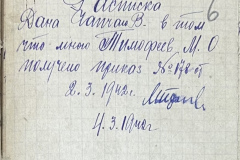 Расписка 6
Дана Чапчай В. в том
что мною Тимофеев М. О
получено приказ №
2.3.1942г.
4.3.1942г